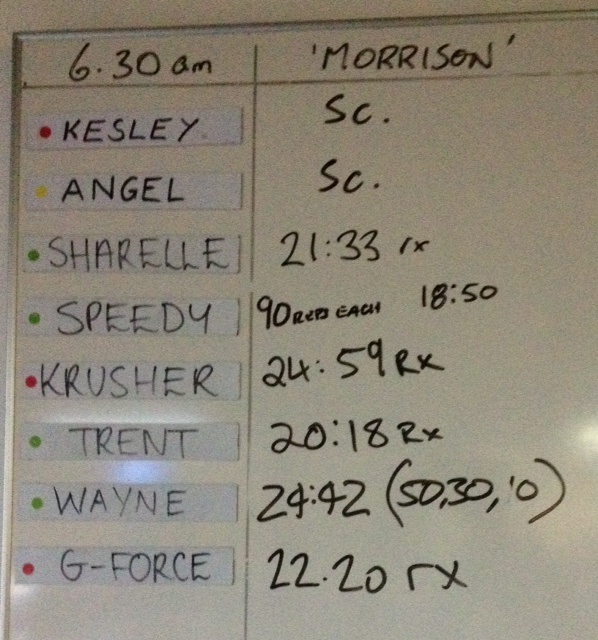 6.30 am 'MORRISON'
KESLEY Sc.
ANGEL Sc.
SHARELLE 21:33 rx
SPEEDY 90 REPS EACH 18:50
KRUSHER 24:59 Rx
TRENT 20:18 Rx
WAYNE 24:42 (50,30,10)
G-FORCE 22.20 rx